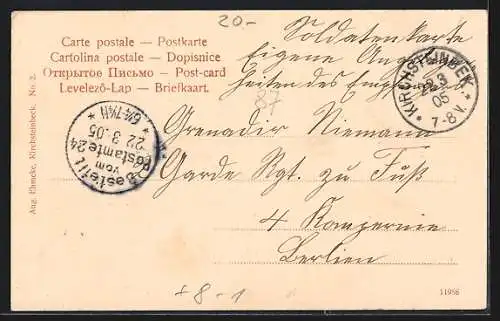 20.-
Carte postale — Postkarte
Cartolina postale — Dopisnice
Открытое Письмо — Post-card
Levelező-Lap — Briefkaart.
Soldatenkarte
Eigene Angelegen-
heiten des Empfängers
87
KIRCHSTEINBEK.
22.3
05
* 7-8 V. *
Bestellt
vom
Postamte 24
22.3.05
Grenadir Niemann
Garde Rgt. zu Fuß
4 Kompernie
Berlien
Aug. Ehmcke, Kirchsteinbeck. No. 2.
+8-1
11956